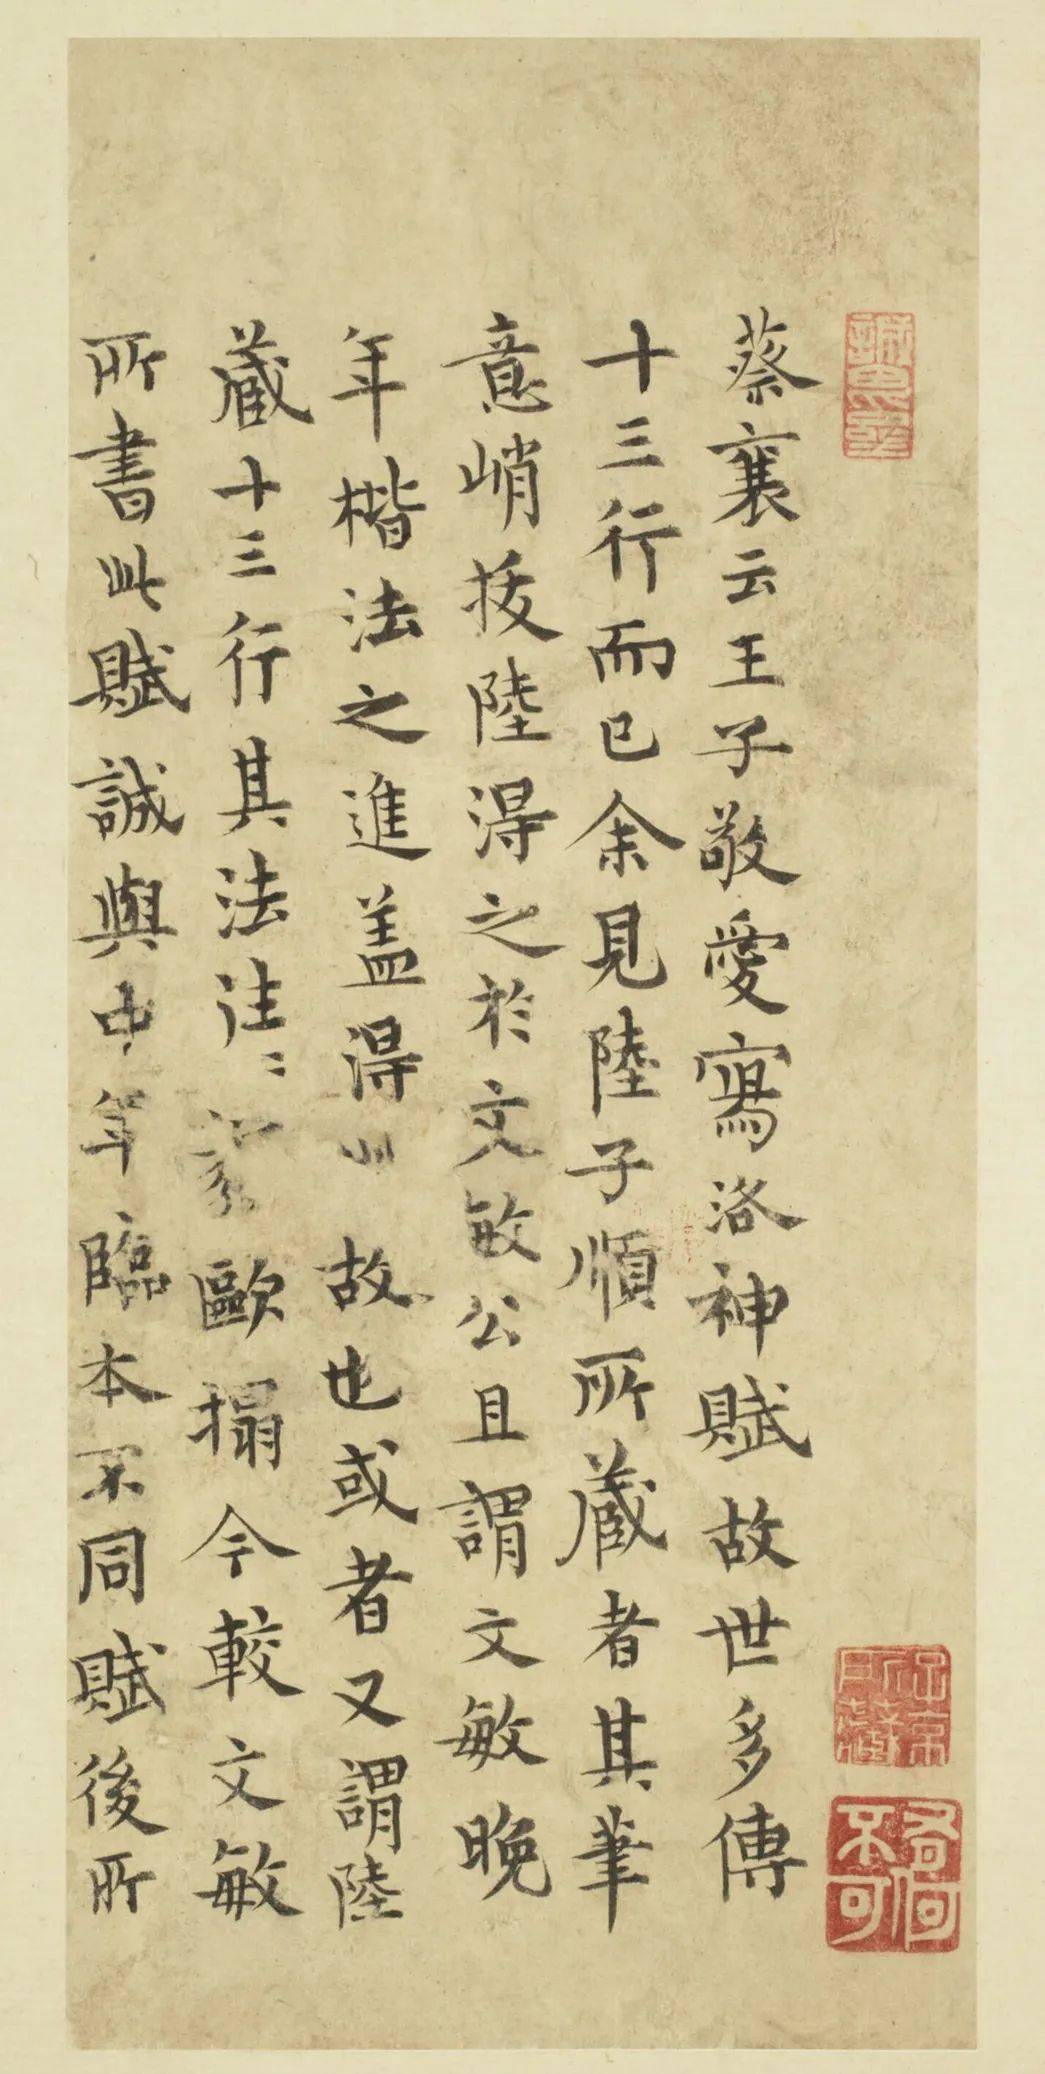 蔡襄云王子敬愛寫洛神賦故世多傳
十三行而已余見陸子順所蔵者其筆
意峭拔陸得之於文敏公且謂文敏晚
年楷法之進盖得此故也或者又謂陸
蔵十三行其法往〻歐搨今較文敏
所書此賦誠與中年臨本不同賦後所
有何不可